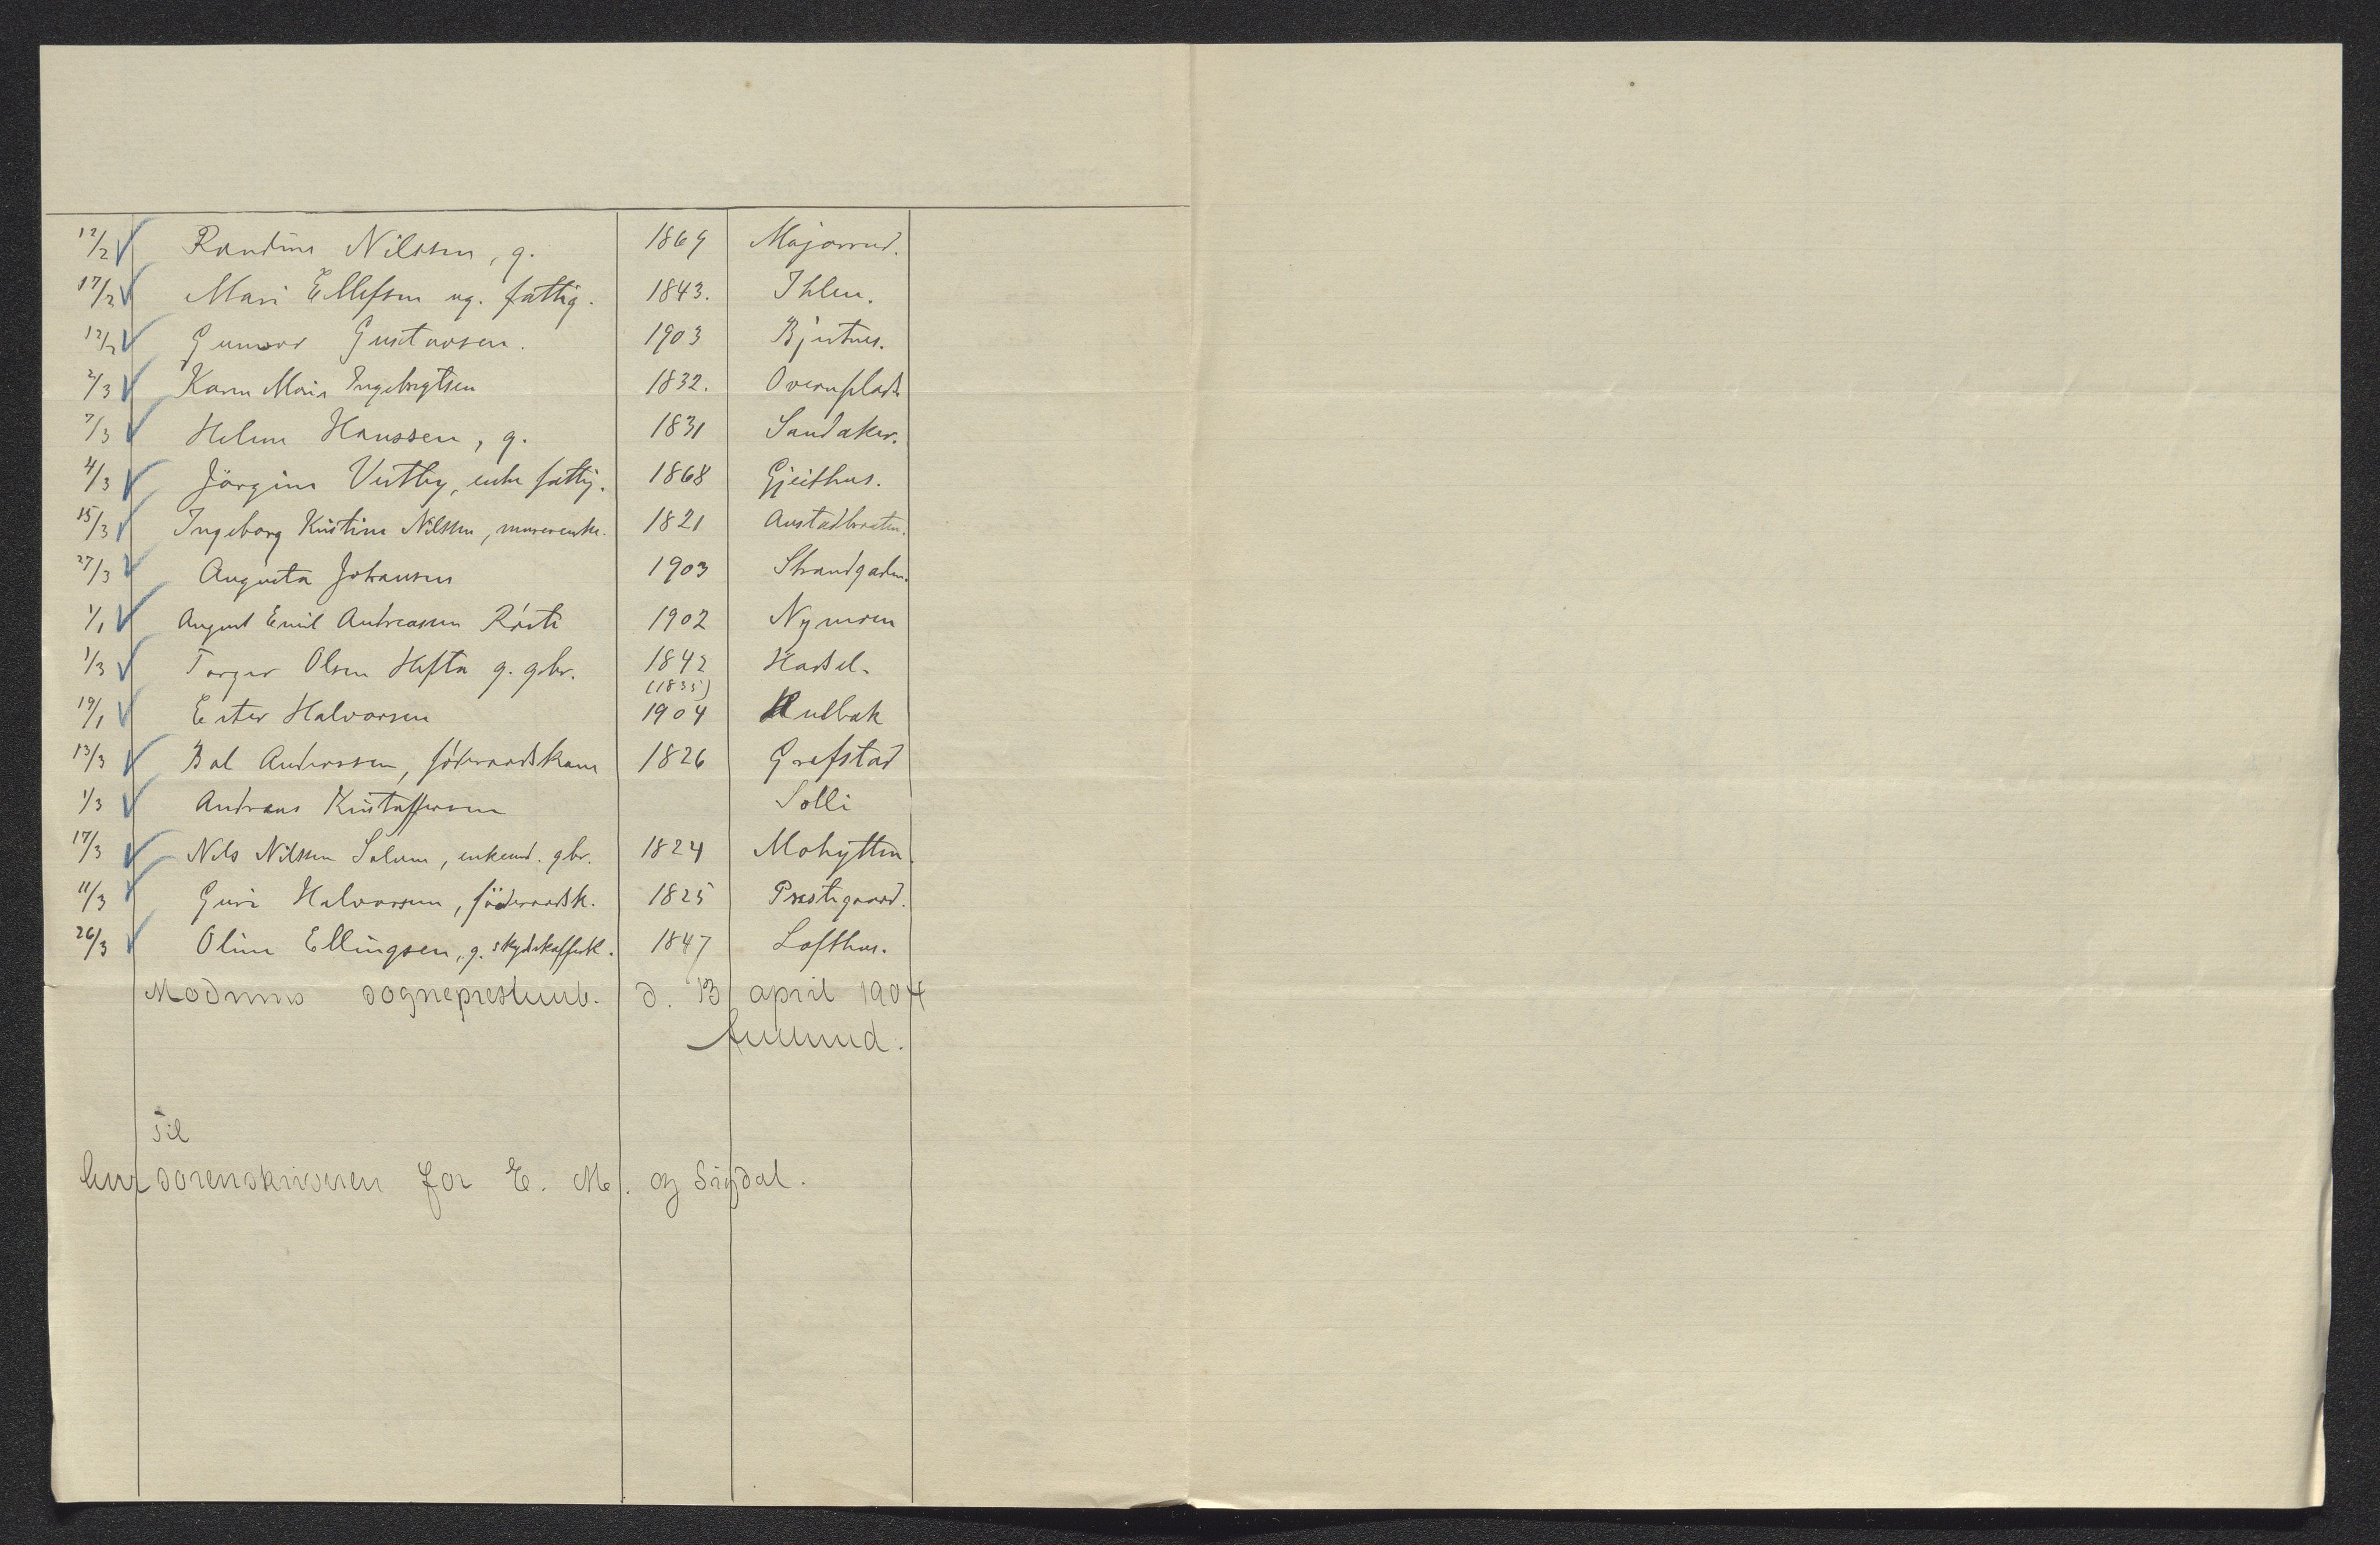 12/2 Randine Nilssen, g. 1869 Majorrud.
17/2 Mari Ellefsen ug. fattig. 1843. Ihlen.
12/2 Gunvor Gustavsen. 1903 Bjertnes.
2/3 Karen Marie Ingebrigtsen 1832. Overnplads
7/3 Helene Hanssen, g. 1831 Sandaker.
4/3 Jörgine Vestby, enke fattig. 1868 Gjeithus.
15/3 Ingeborg Kristine Nilssen, murerenke. 1821 Austadbraaten.
27/3 Augusta Johansen 1903 Strandgaden.
1/1 August Emil Andreassen Röiste 1902 Nymoen
1/3 Torger Olsen Hefte g. gbr. 1842 Hassel.
(1835)
19/1 Ester Halvorsen 1904 Hulbak
13/3 Bol Anderssen, föderaadskone 1826 Grefstad
1/3 Andreas Kristoffersen Solli
17/3 Nils Nilssen Solum, enkemd. gbr. 1824 Mohytten.
11/3 Guri Halvorsen, föderaadsk. 1825 Prestegaard.
26/3 Oline Ellingsen, g. skydskafferk. 1847 Lofthus.
Modums sogneprestemb. d. 13 april 1904
Til
herr sorenskriveren for E. M. og Sigdal.